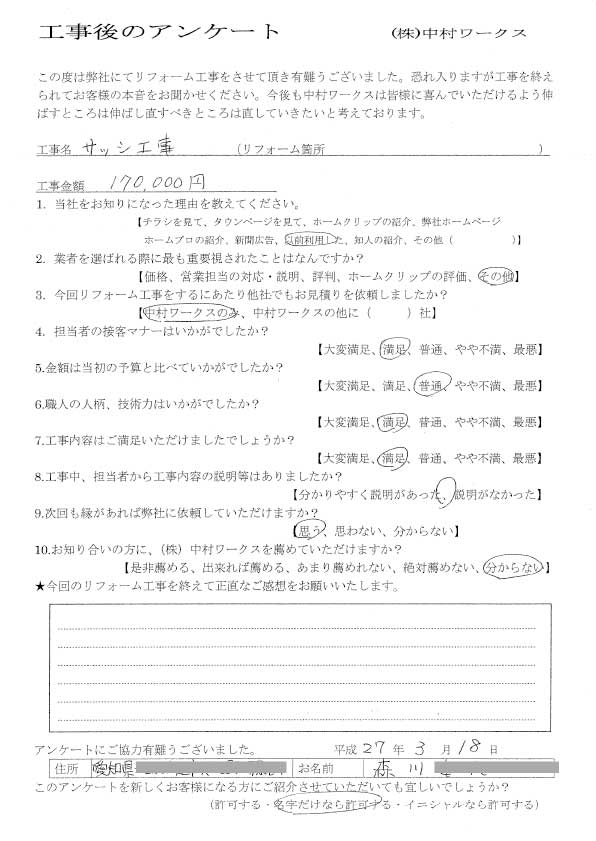 工事後のアンケート (株)中村ワークス
この度は弊社にてリフォーム工事をさせて頂き有難うございました。恐れ入りますが工事を終え
られてお客様の本音をお聞かせください。今後も中村ワークスは皆様に喜んでいただけるよう伸
ばすところは伸ばし直すべきところは直していきたいと考えております。
工事名 サッシ工事 (リフォーム箇所 )
工事金額 170,000円
1. 当社をお知りになった理由を教えてください。
【チラシを見て、タウンページを見て、ホームクリップの紹介、弊社ホームページ
ホームプロの紹介、新聞広告、以前利用した、知人の紹介、その他( )】
2. 業者を選ばれる際に最も重要視されたことはなんですか?
【価格、営業担当の対応・説明、評判、ホームクリップの評価、その他】
3. 今回リフォーム工事をするにあたり他社でもお見積りを依頼しましたか?
【中村ワークスのみ、中村ワークスの他に( )社】
4. 担当者の接客マナーはいかがでしたか?
【大変満足、満足、普通、やや不満、最悪】
5.金額は当初の予算と比べていかがでしたか?
【大変満足、満足、普通、やや不満、最悪】
6.職人の人柄、技術力はいかがでしたか?
【大変満足、満足、普通、やや不満、最悪】
7.工事内容はご満足いただけましたでしょうか?
【大変満足、満足、普通、やや不満、最悪】
8.工事中、担当者から工事内容の説明等はありましたか?
【分かりやすく説明があった、説明がなかった】
9.次回も縁があれば弊社に依頼していただけますか?
【思う、思わない、分からない】
10.お知り合いの方に、(株)中村ワークスを薦めていただけますか?
【是非薦める、出来れば薦める、あまり薦めれない、絶対薦めない、分からない】
★今回のリフォーム工事を終えて正直なご感想をお願いいたします。
アンケートにご協力有難うございました。 平成 27 年 3 月 18 日
住所 愛知県 お名前 森川
このアンケートを新しくお客様になる方にご紹介させていただいても宜しいでしょうか?
(許可する・名字だけなら許可する・イニシャルなら許可する)